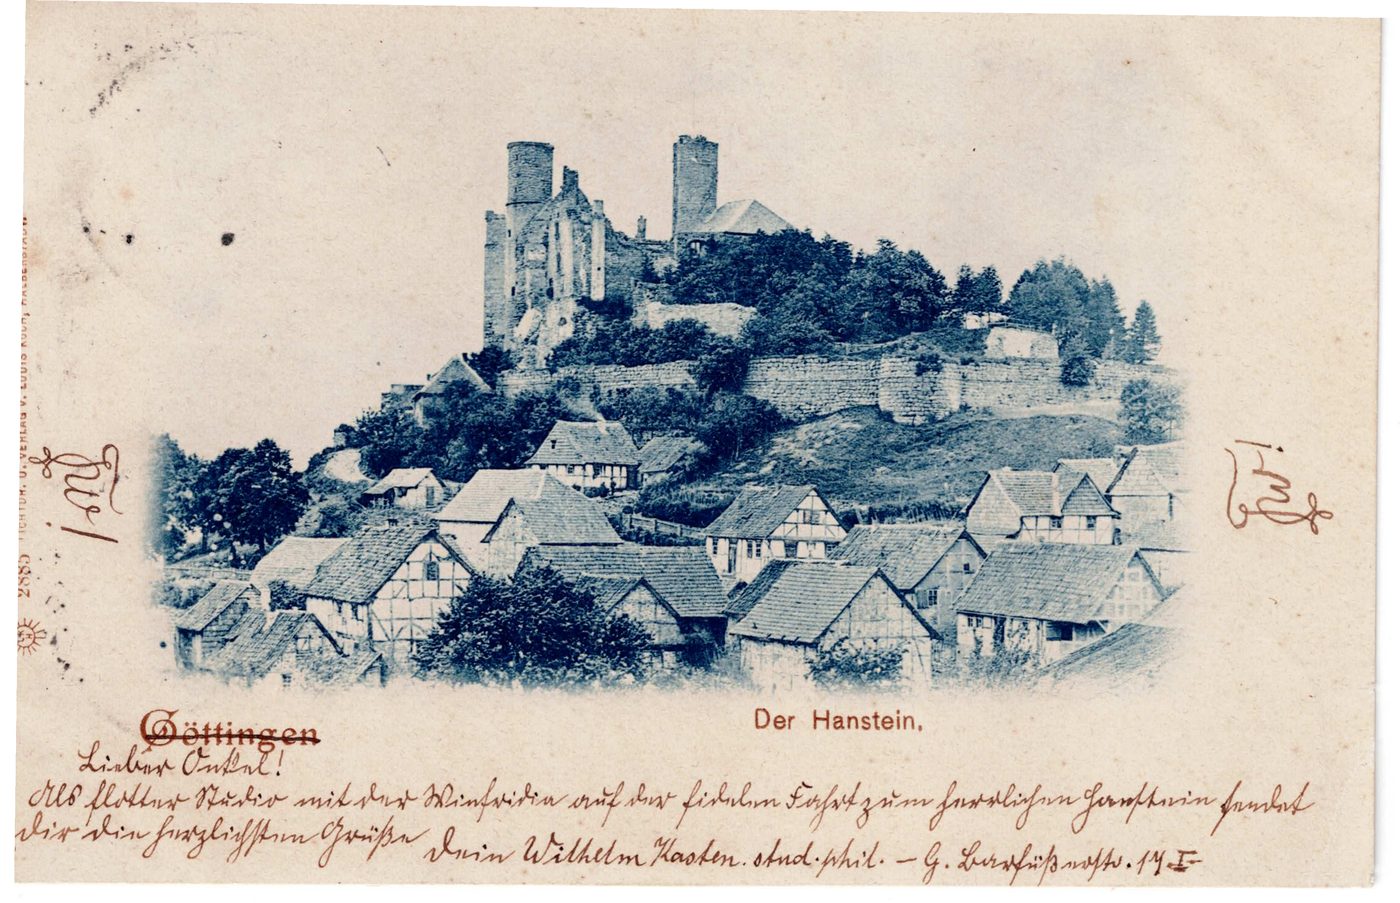 2885 LICHTDR. U. VERLAG V. LOUIS KOCH, HALBERSTADT
Göttingen
Der Hanstein.
Lieber Onkel!
Als flotter Studio mit der Winfridia auf der fidelen Fahrt zum herrlichen Hanstein sendet
dir die herzlichsten Grüße
Dein Wilhelm Kasten. stud. phil. – G. Barfüßerstr. 14 I